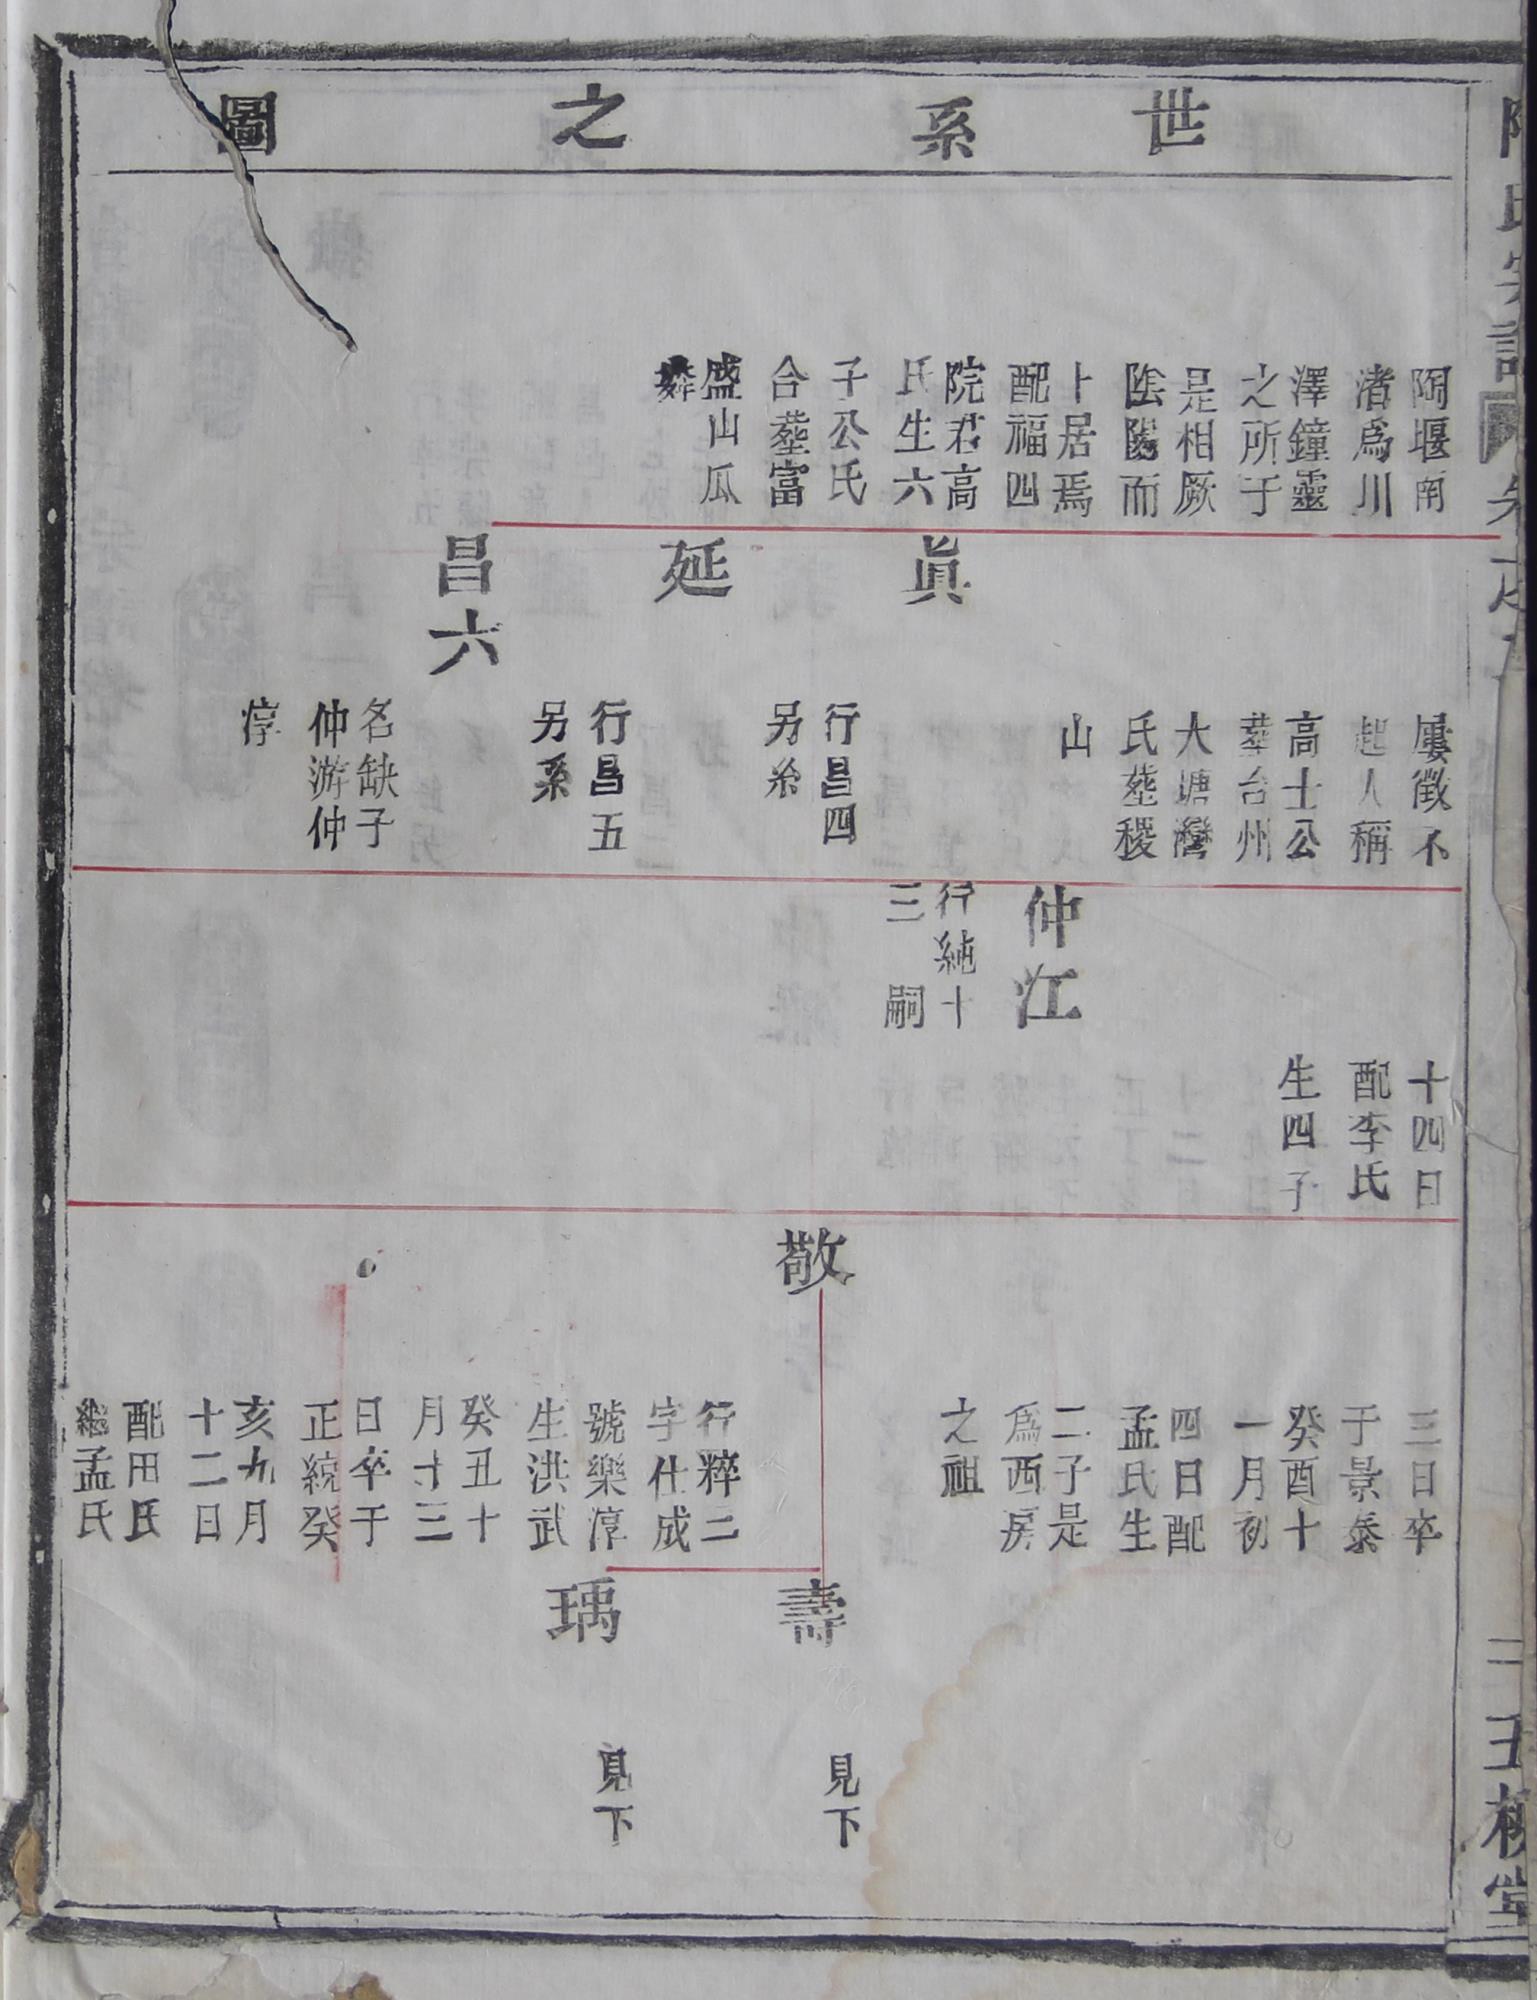 世系之圖
陶堰南
渚爲川
澤鐘靈
之所于
是相厥
陰陽而
卜居焉
配福四
院君高
氏生六
子公氏
合塟富
盛山瓜
眞
延
昌六
屢徵不
起人稱
高士公
塟台州
大塘灣
氏塟稷
山
行昌四
另系
行昌五
另系
名缺子
仲游仲
淳
仲江
行純十
三 嗣
十四日
配李氏
生四子
敬
三日卒
于景泰
癸酉十
一月初
四日配
孟氏生
二子是
爲西房
之祖
行粹二
字仕成
號樂淳
生洪武
癸丑十
月十三
日卒于
正統癸
亥九月
十二日
配田氏
繼孟氏
壽
瑀
見下
見下
五柳堂